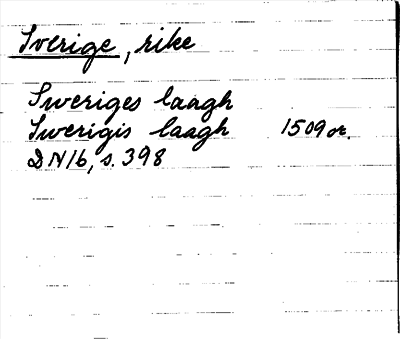 Sverige, rike
Sweriges laagh
Swerigis laagh 1509 or.
DN16, s. 398